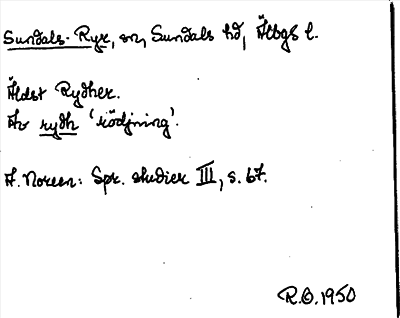 Sundals-Ryr, sn, Sundals hd, Älbgs l.
Äldst Rydher.
Av rydh 'rödjning'.
A. Noreen: Spr. studier III, s. 67.
R.O. 1950